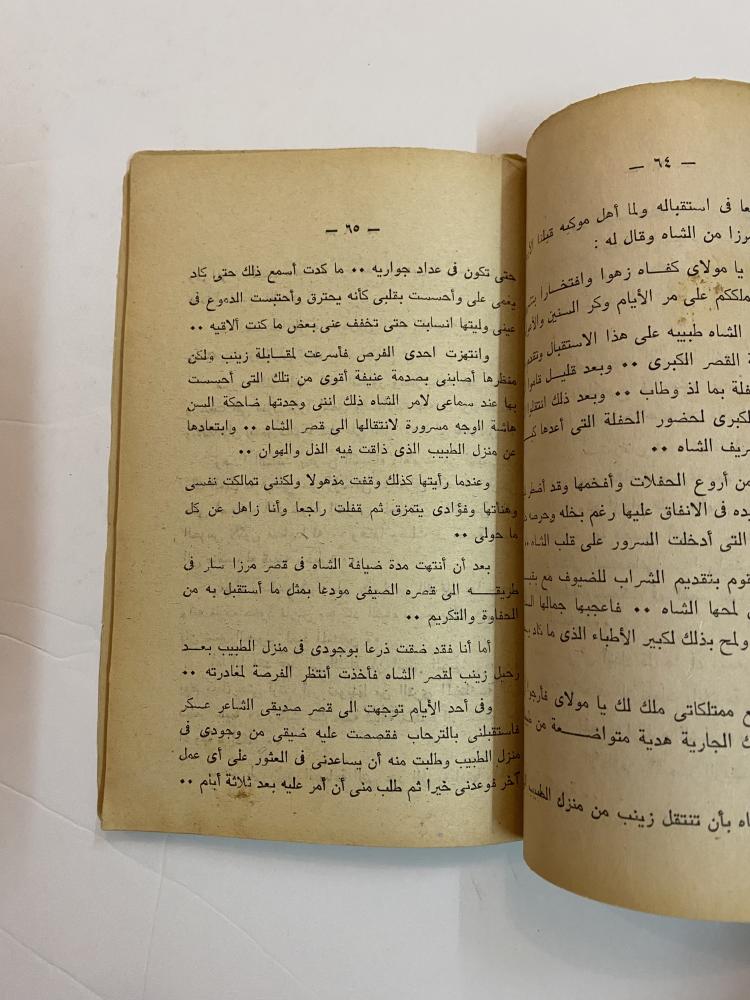 — ٦٤ —
عا فى استقباله ولما أهل موكبه قبلنا
مرزا من الشاه وقال له :
يا مولاى كفـاه زهوا وافتخـارا
ملككم على مر الأيام وكر السنين
الشاه طبيبه على هذا الاستقبال
ة القصر الكبرى •• وبعد قليل
فلة بما لذ وطاب •• وبعد ذلك
الكبرى لحضور الحفلة التى أعدها
ريف الشاه ••
من أروع الحفلات وأفخمها وقد
يده فى الانفاق عليها رغم بخله
التى أدخلت السرور على قلب الشاه ••
قوم بتقديم الشراب للضيوف مع
لمحها الشاه •• فاعجبها جمالها
ولمح بذلك لكبير الأطباء الذى ما
ع ممتلكاتى ملك لك يا مولاى
ك الجارية هدية متواضـــعة من
اه بأن تنتقل زينب من منزل الطبيب
— ٦٥ —
حتى تكون فى عداد جواريه •• ما كدت أسمع ذلك حتى كاد
يغمى على وأحسست بقلبى كأنه يحترق وأحتبست الدموع فى
عينى وليتها انسابت حتى تخفف عنى بعض ما كنت ألاقيه ••
وانتهزت احدى الفرص فأسرعت لمقـابلة زينب ولكن
منظرها أصابنى بصدمة عنيفة أقوى من تلك التى أحسست
بها عند سماعى لامر الشاه ذلك اننى وجدتها ضاحكة السن
هاشة الوجه مسرورة لانتقالها الى قصر الشاه •• وابتعادها
عن منزل الطبيب الذى ذاقت فيه الذل والهوان ••
وعندما رأيتها كذلك وقفت مذهولا ولكننى تمالكت نفسى
وهنأتها وفؤادى يتمزق ثم قفلت راجعا وأنا زاهل عن كل
ما حولى ••
بعد أن أنتهت مدة ضيافة الشاه فى قصر مرزا سار فى
طريقـــه الى قصره الصيفى مودعا بمثل ما أستقبل به من
الحفاوة والتكريم ••
أما أنا فقد ضقت ذرعا بوجودى فى منزل الطبيب بعـد
رحيل زينب لقصر الشاه فأخذت أنتظر الفرصة لمغادرته ••
وفى أحد الأيام توجهت الى قصر صديقى الشاعر عسكر
فاستقبلنى بالترحاب فقصصت عليه ضيقى من وجودى فى
منزل الطبيب وطلبت منه أن يساعدنى فى العثور على أى عمل
آخر فوعدنى خيرا ثم طلب منى أن أمر عليه بعد ثلاثة أيام ••